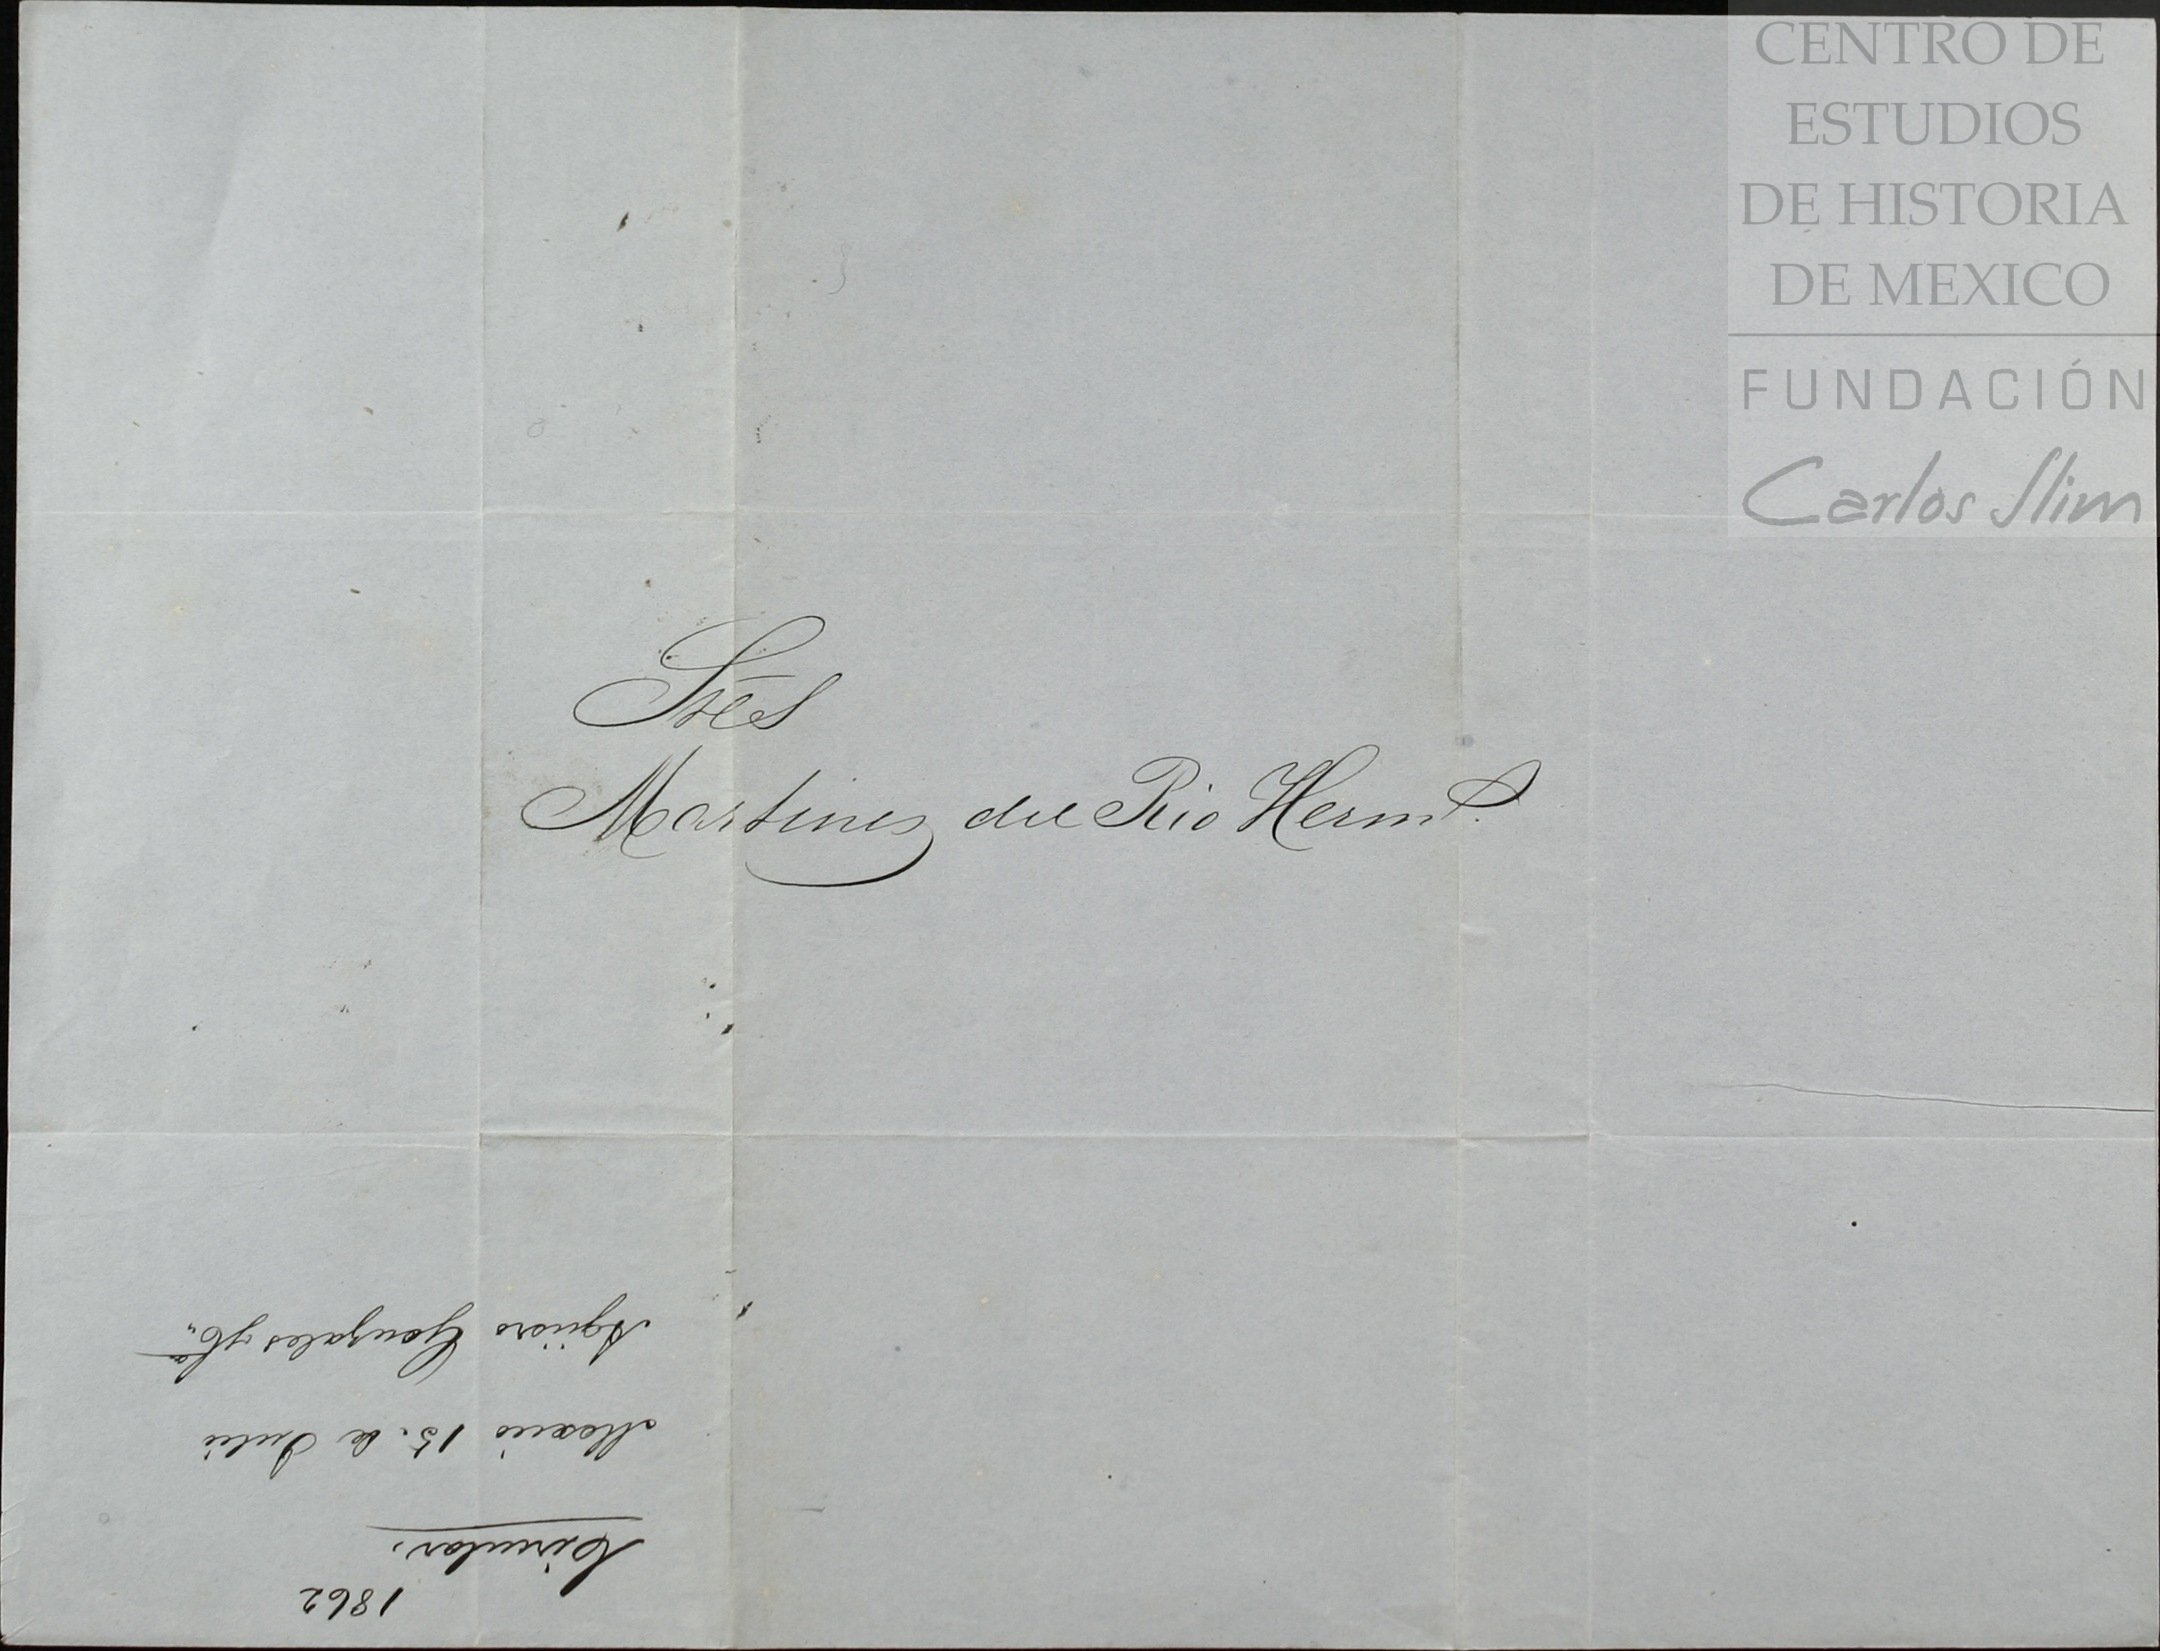 CENTRO DE
ESTUDIOS
DE HISTORIA
DE MEXICO
FUNDACIÓN
Carlos Slim
Srēs
Martines del Rio Hermˢ.
1862
Circular.
Mexico 15. de Julio
Agüero Gonzales y Cª.